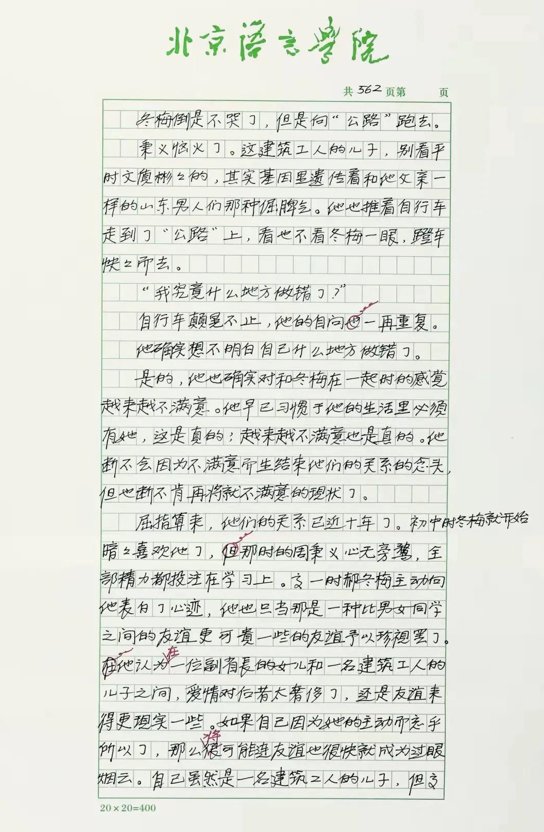 北京语言学院
共362页第 页
冬梅倒是不哭了，但是向“公路”跑去。
秉义恼火了。这建筑工人的儿子，别看平
时文质彬々的，其实基因里遗传着和他父亲一
样的山东男人们那种倔脾气。他也推着自行车
走到了“公路”上，看也不看冬梅一眼，蹬车
快々而去。
“我究竟什么地方做错了？”
自行车颠簸不止，他的自问也一再重复。
他确实想不明白自己什么地方做错了。
是的，他也确实对和冬梅在一起时的感觉
越来越不满意。他早已习惯于他的生活里必须
有她，这是真的；越来越不满意也是真的。他
断不会因为不满意而生结束他们的关系的念头，
但也断不肯再将就不满意的现状了。
屈指算来，他们的关系已近十年了。初中时冬梅就开始
暗々喜欢他了，但那时的周秉义心无旁骛，全
部精力都投注在学习上。有一时郝冬梅主动向
他表白了心迹，他也只当那是一种比男女同学
之间的友谊更可贵一些的友谊予以珍视罢了。
在他认为在一位副省长的女儿和一名建筑工人的
儿子之间，爱情对后者太奢侈了，还是友谊来
得更现实一些。如果自己因为她的主动而忘乎
所以了，那么将很可能连友谊也很快就成为过眼
烟云。自己虽然是一名建筑工人的儿子，但
20×20=400